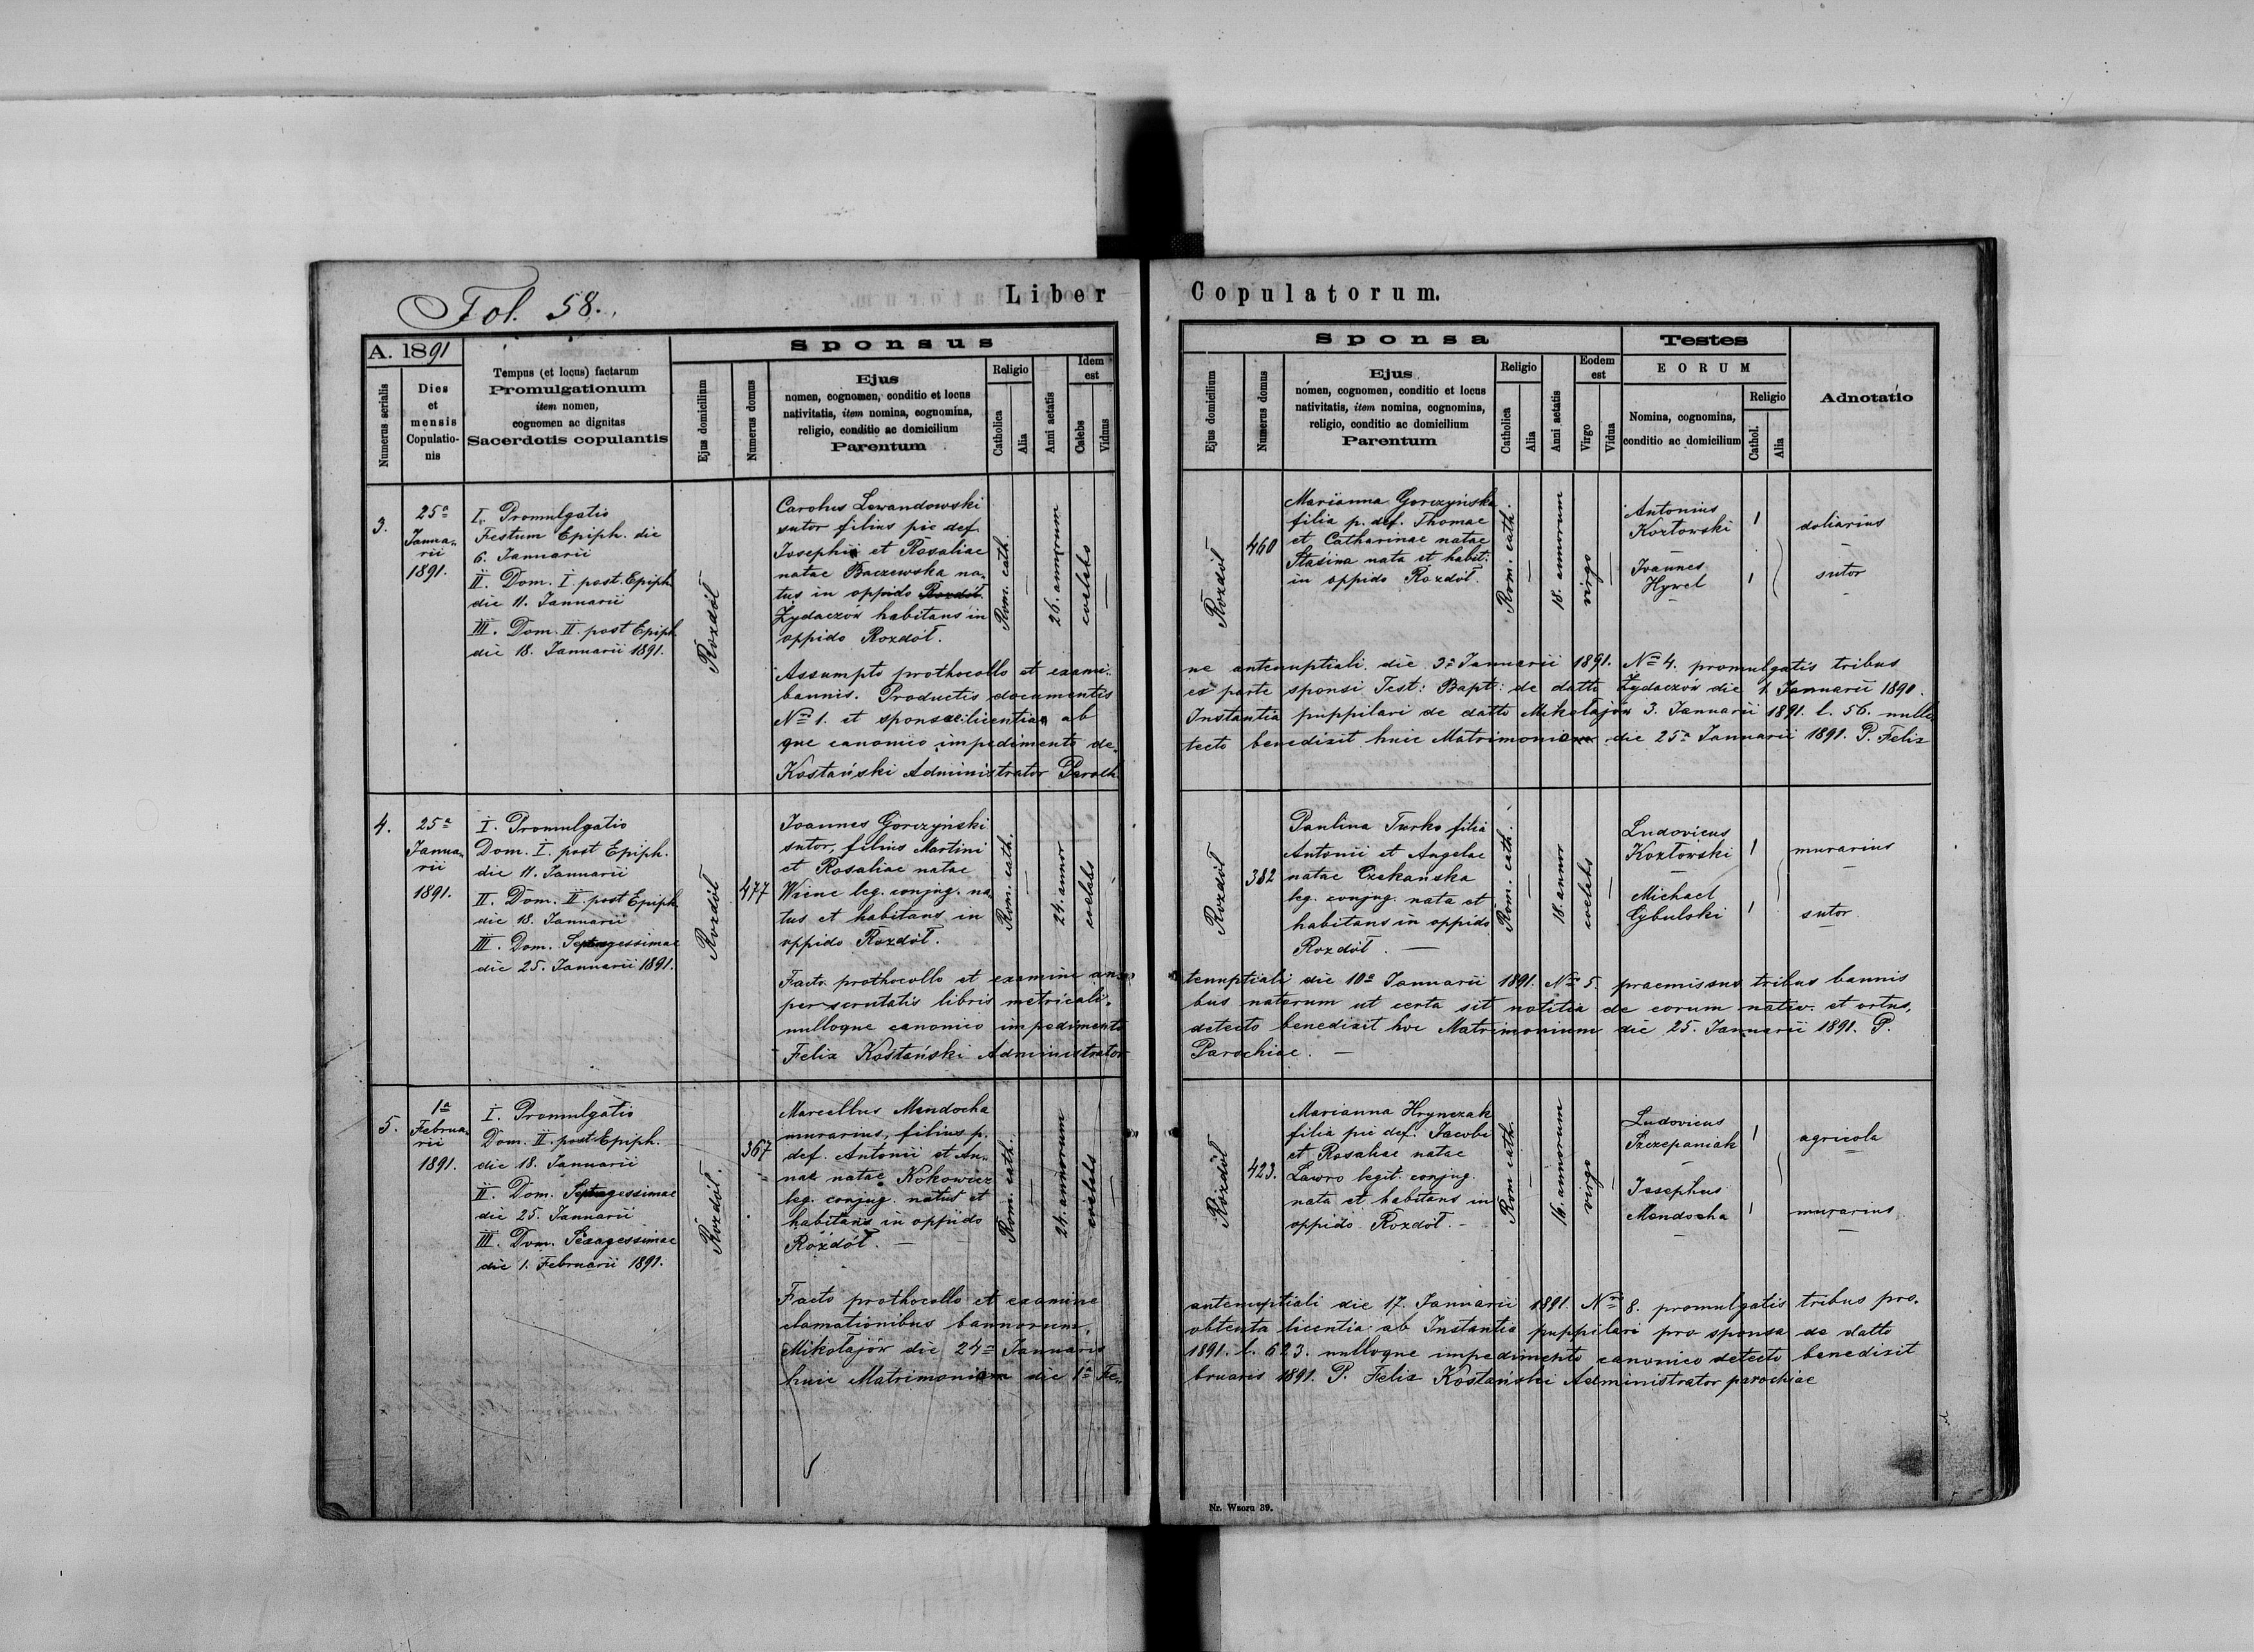 Fol. 58.
Liber Copulatorum.
A. 1891
Numerus serialis
Dies
et
mensis
Copulatio-
nis
Tempus (et locus) factarum
Promulgationum
item nomen,
cognomen ac dignitas
Sacerdotis copulantis
Sponsus
Ejus domicilium
Numerus domus
Ejus
nomen, cognomen, conditio et locus
nativitatis, item nomina, cognomina,
religio, conditio ac domicilium
Parentum
Religio
Catholica
Alia
Anni aetatis
Idem
est
Calebs
Viduus
Sponsa
Ejus domicilium
Numerus domus
Ejus
nomen, cognomen, conditio et locus
nativitatis, item nomina, cognomina,
religio, conditio ac domicilium
Parentum
Religio
Catholica
Alia
Anni aetatis
Eodem
est
Virgo
Vidua
Testes
EORUM
Nomina, cognomina,
conditio ac domicilium
Religio
Cathol.
Alia
Adnotatio
3.
25ª
Janua-
rii
1891.
I. Promulgatio
Festum Epiph. die
6. Januarii
II. Dom. I. post. Epiph.
die 11. Januarii
III. Dom. II. post Epiph.
die 18. Januarii 1891.
Rozdół
Carolus Lewandowski
sutor filius pie def.
Josephi et Rosaliae
natae Baczewska na-
tus in oppido Rozdół
Żydaczów habitans in
oppido Rozdół.
Rom. cath.
26. annorum
coelebs
Rozdół
460
Marianna Gorczyńska
filia p. def. Thomae
et Catharinae natae
Stasina nata et habit.
in oppido Rozdół.
Rom. cath.
18. annorum
virgo
Antonius
Kozłowski
1
doliarius
Joannes
Hywel
1
sutor
Assumpto prothocollo et exami-
ne antenuptiali die 3ª Januarii 1891. Nº 4. promulgatis tribus
bannis. Productis documentis
ex parte sponsi Test: Bapt: de datto Żydaczów die 1. Januarii 1891.
Nº 1. et sponsae licentia ab
Instantia puppilari de datto Mikołajów 3. Januarii 1891. l. 56. nullo
que canonico impedimento de-
tecto benedixit huic Matrimonio die 25ª Januarii 1891. P. Felix
Kostański Administrator Paroch.
4.
25ª
Janua-
rii
1891.
I. Promulgatio
Dom. I. post Epiph.
die 11. Januarii
II. Dom. II. post Epiph.
die 18. Januarii
III. Dom. Septuagessimae
die 25. Januarii 1891.
Rozdół
477
Joannes Gorczyński
sutor, filius Martini
et Rosaliae natae
Wiene leg. conjug. na-
tus et habitans in
oppido Rozdół.
Rom. cath.
24. annor
coelebs
Rozdół
382
Paulina Turko filia
Antonii et Angelae
natae Czekańska
leg. conjug. nata et
habitans in oppido
Rozdół.
Rom. cath.
18. annor
coelebs
Ludovicus
Kozłowski
1
murarius
Michael
Cybulski
1
sutor
Facto prothocollo et examine an-
tenuptiali die 10ª Januarii 1891. Nº 5. praemissus tribus bannis
per scrutatis libris metricali-
bus natorum ut certa sit notitia de eorum nativ. et ortus,
nulloque canonico impedimento
detecto benedixit hoc Matrimonium die 25. Januarii 1891. P.
Felix Kostański Administrator
Parochiae.
5.
1ª
Februa-
rii
1891.
I. Promulgatio
Dom. II. post Epiph.
die 18. Januarii
II. Dom. Septuagessimae
die 25. Januarii
III. Dom. Sexagessimae
die 1. Februarii 1891.
Rozdół.
367
Marcellus Mendocha
murarius, filius p.
def. Antonii et An-
nae natae Kokowicz
leg. conjug. natus et
habitans in oppido
Rozdół.
Rom. cath.
24. annorum
coelebs
Rozdół
423.
Marianna Hrynczak
filia pie def. Jacobi
et Rosaliae natae
Lawro legit. conjug.
nata et habitans in
oppido Rozdół.
Rom. cath.
16. annorum
virgo
Ludovicus
Szczepaniak
1
agricola
Josephus
Mendocha
1
murarius
Facto prothocollo et examine
antenuptiali die 17. Januarii 1891. Nº 8. promulgatis tribus pro-
clamationibus bannorum,
obtenta licentia ab Instantia puppilari pro sponsa de datto
Mikołajów die 24ª Januarii
1891. l. 623. nulloque impedimento canonico detecto benedixit
huic Matrimonio die 1ª Fe-
bruaris 1891. P. Felix Kostański Administrator parochiae
Nr. Wzoru 39.